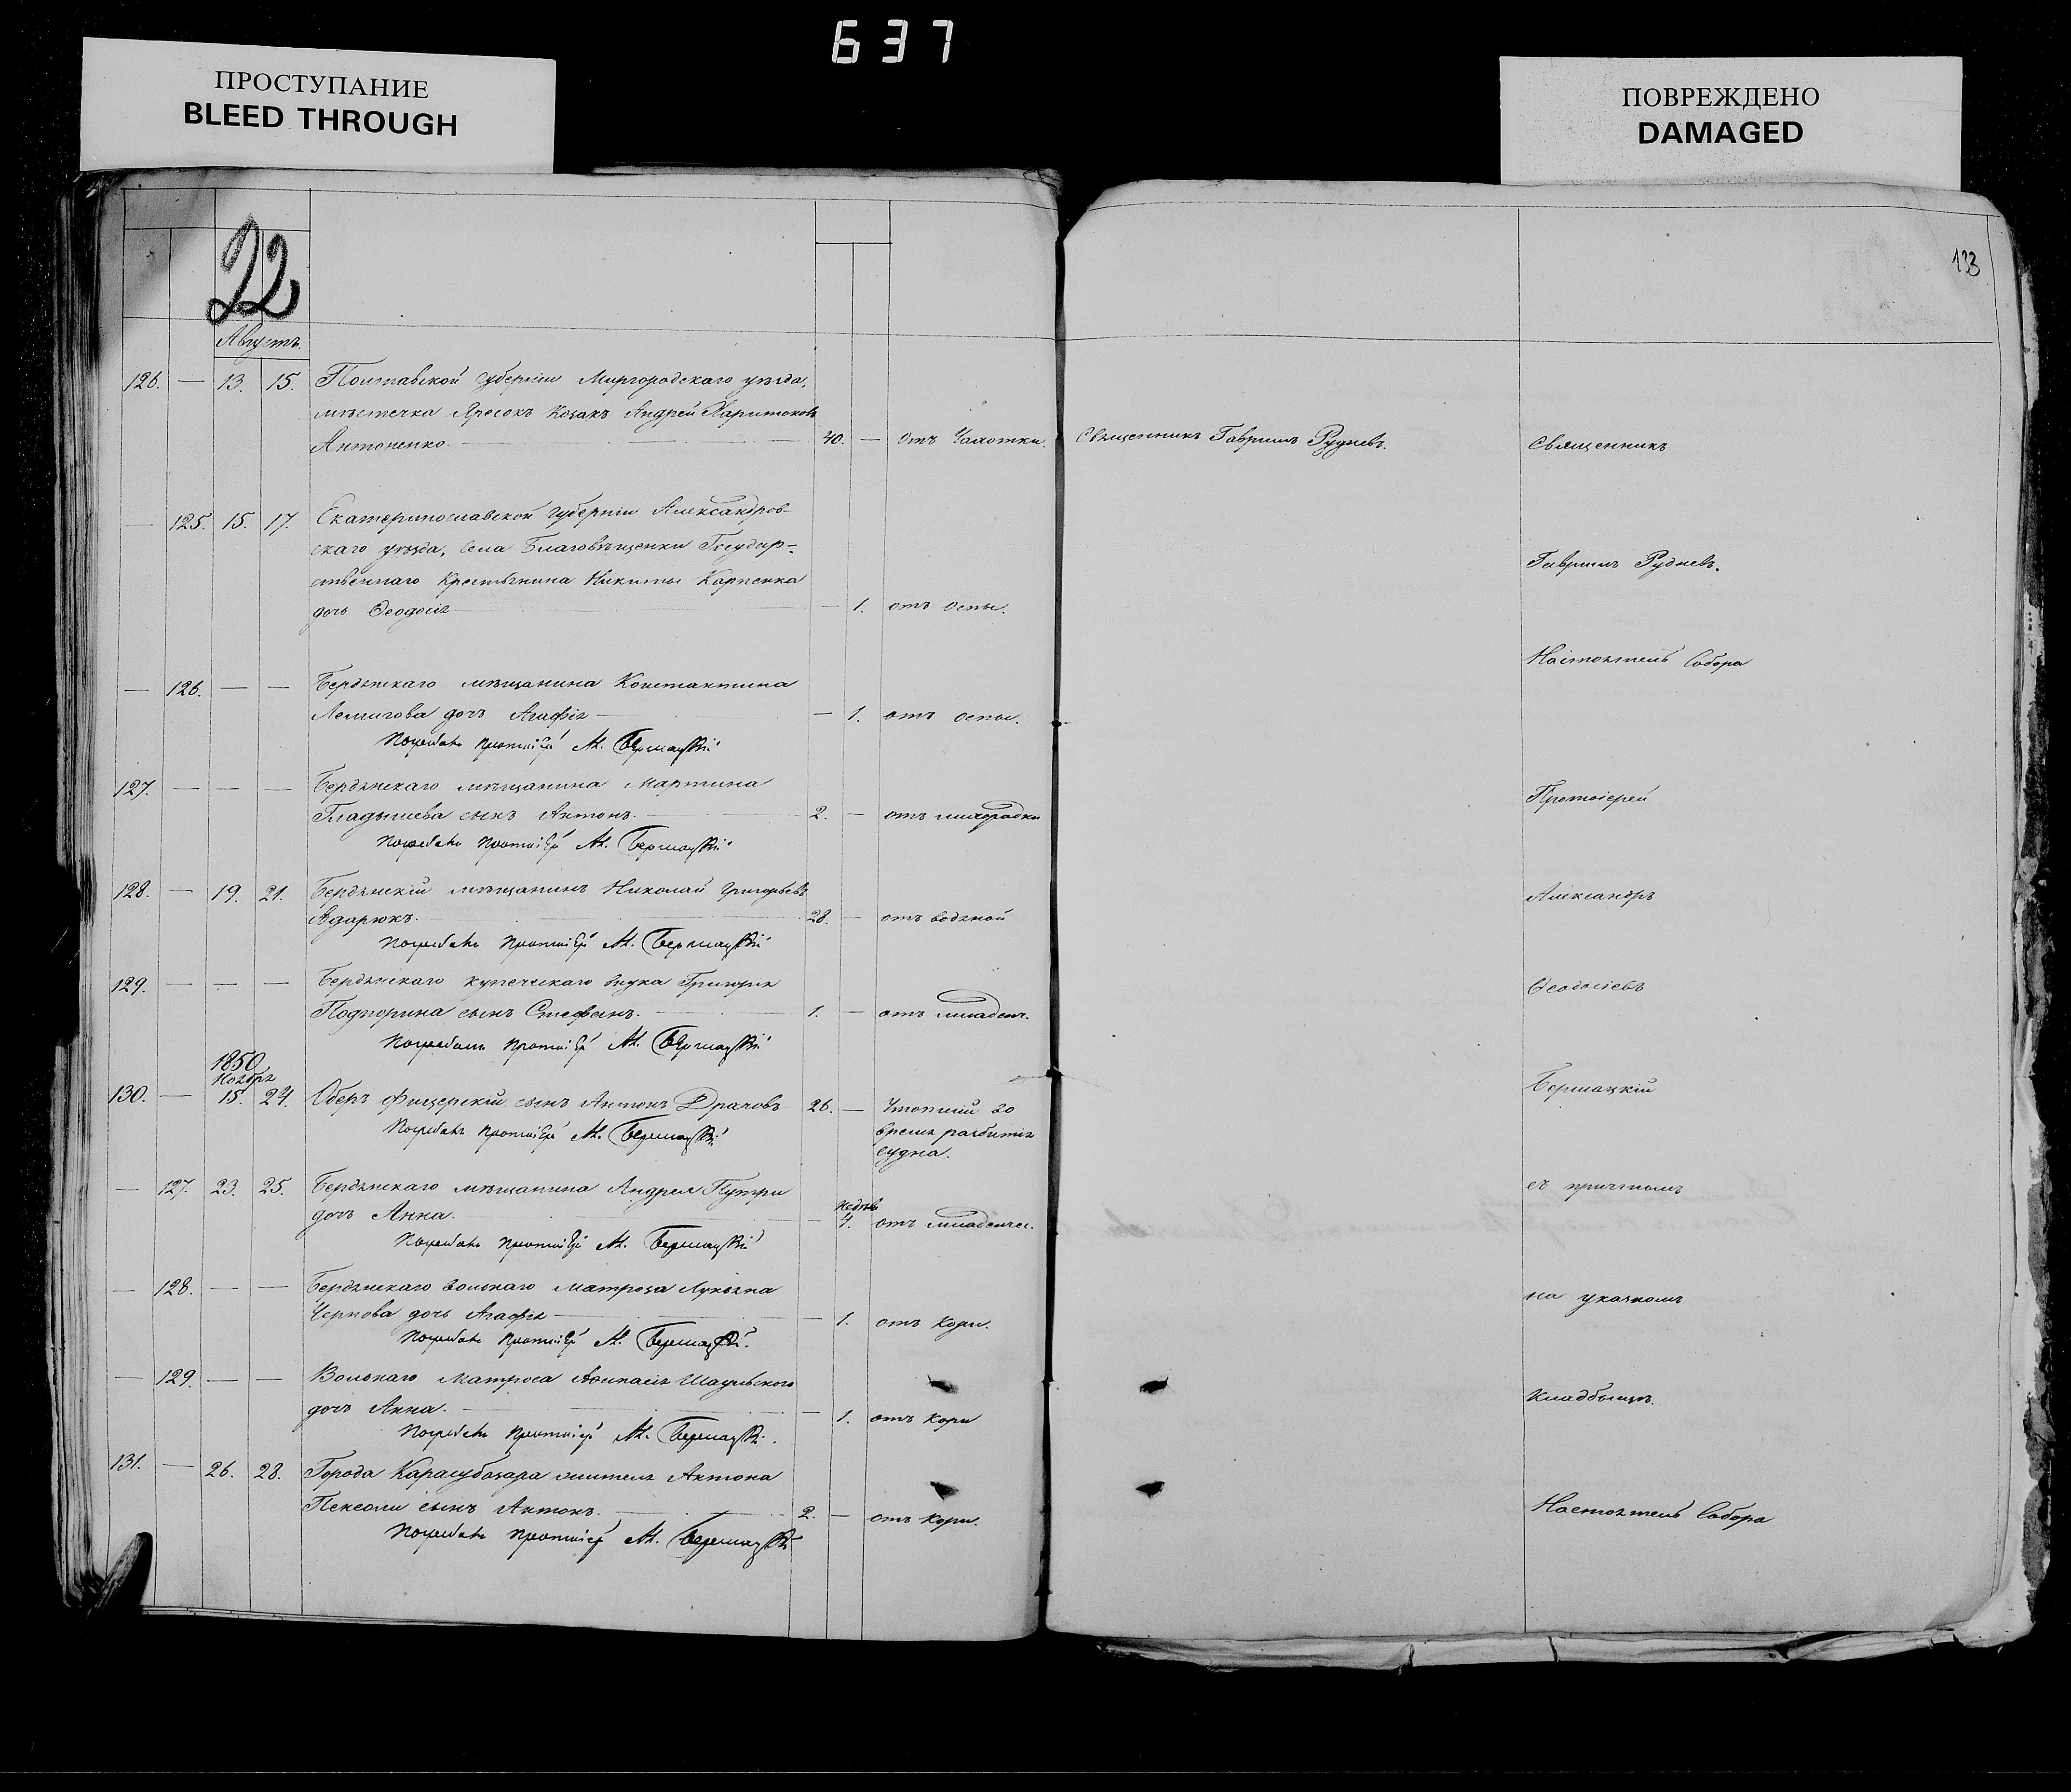 637
ПРОСТУПАНИЕ
BLEED THROUGH
ПОВРЕЖДЕНО
DAMAGED
22
133
Августъ.
126. — 13. 15. Полтавской губерніи Миргородскаго уѣзда,
мѣстечка Яресокъ козакъ Андрей Харитоновъ
Антоненко. — 40. — отъ чахотки. Священникъ Гавріилъ Рудневъ. Священникъ
— 125. 15. 17. Екатеринославской губерніи Александров-
скаго уѣзда, села Благовѣщенки Государ-
ственнаго крестьянина Никиты Карпенка
дочь Ѳеодосія — — 1. отъ оспы.
Гавріилъ Рудневъ.
Настоятель Собора
— 126. — — Бердянскаго мѣщанина Константина
дочь Агафія — — 1. отъ оспы.
Погребалъ Протоіерей А. Бершацкій
127. — — — Бердянскаго мѣщанина Мартина
Гладышева сынъ Антонъ. — 2. — отъ лихорадки
Погребалъ Протоіерей А. Бершацкій
Протоіерей
128. — 19. 21. Бердянскій мѣщанинъ Николай Григорьевъ
Адарюкъ. — 28. — отъ водяной
Погребалъ Протоіерей А. Бершацкій
Александръ
129. — — — Бердянскаго купеческаго внука Григорія
сынъ Стефанъ. — 1. — отъ младенч.
Погребалъ Протоіерей А. Бершацкій
Ѳеодосіевъ
1850
Ноября
130. — 15. 24. Оберъ Фицерскій сынъ Антонъ Драчовъ 26. — Утопшій во
время разбитія
судна.
Погребалъ Протоіерей А. Бершацкій
Бершацкій
— 127. 23. 25. Бердянскаго мѣщанина Андрея Путри
дочь Анна. — — недѣль 4. отъ младенчес.
Погребалъ Протоіерей А. Бершацкій
съ причтомъ
— 128. — — Бердянскаго вольнаго матроса Лукьяна
Чернова дочь Агафія — — 1. отъ кори.
Погребалъ Протоіерей А. Бершацкій.
на указномъ
— 129. — — Вольнаго матроса Аѳанасія
дочь Анна. — — 1. отъ кори
Погребалъ Протоіерей А. Бершацкій.
кладбищѣ.
131. — 26. 28. Города Карасубазара жителя Антона
сынъ Антонъ. — 2. — отъ кори.
Погребалъ Протоіерей А. Бершацкій
Настоятель Собора